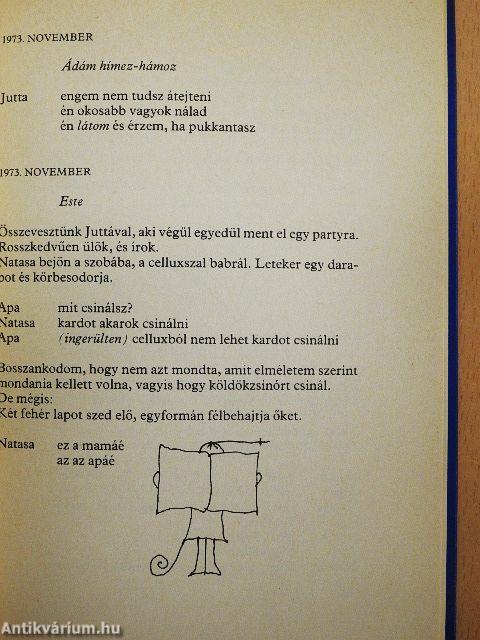 1973. NOVEMBER
Ádám hímez-hámoz
Jutta engem nem tudsz átejteni
én okosabb vagyok nálad
én látom és érzem, ha pukkantasz
1973. NOVEMBER
Este
Összevesztünk Juttával, aki végül egyedül ment el egy partyra.
Rosszkedvűen ülök, és írok.
Natasa bejön a szobába, a celluxszal babrál. Leteker egy dara-
bot és körbesodorja.
Apa mit csinálsz?
Natasa kardot akarok csinálni
Apa (ingerülten) celluxból nem lehet kardot csinálni
Bosszankodom, hogy nem azt mondta, amit elméletem szerint
mondania kellett volna, vagyis hogy köldökzsinórt csinál.
De mégis:
Két fehér lapot szed elő, egyformán félbehajtja őket.
Natasa ez a mamáé
az az apáé
Antikvárium.hu